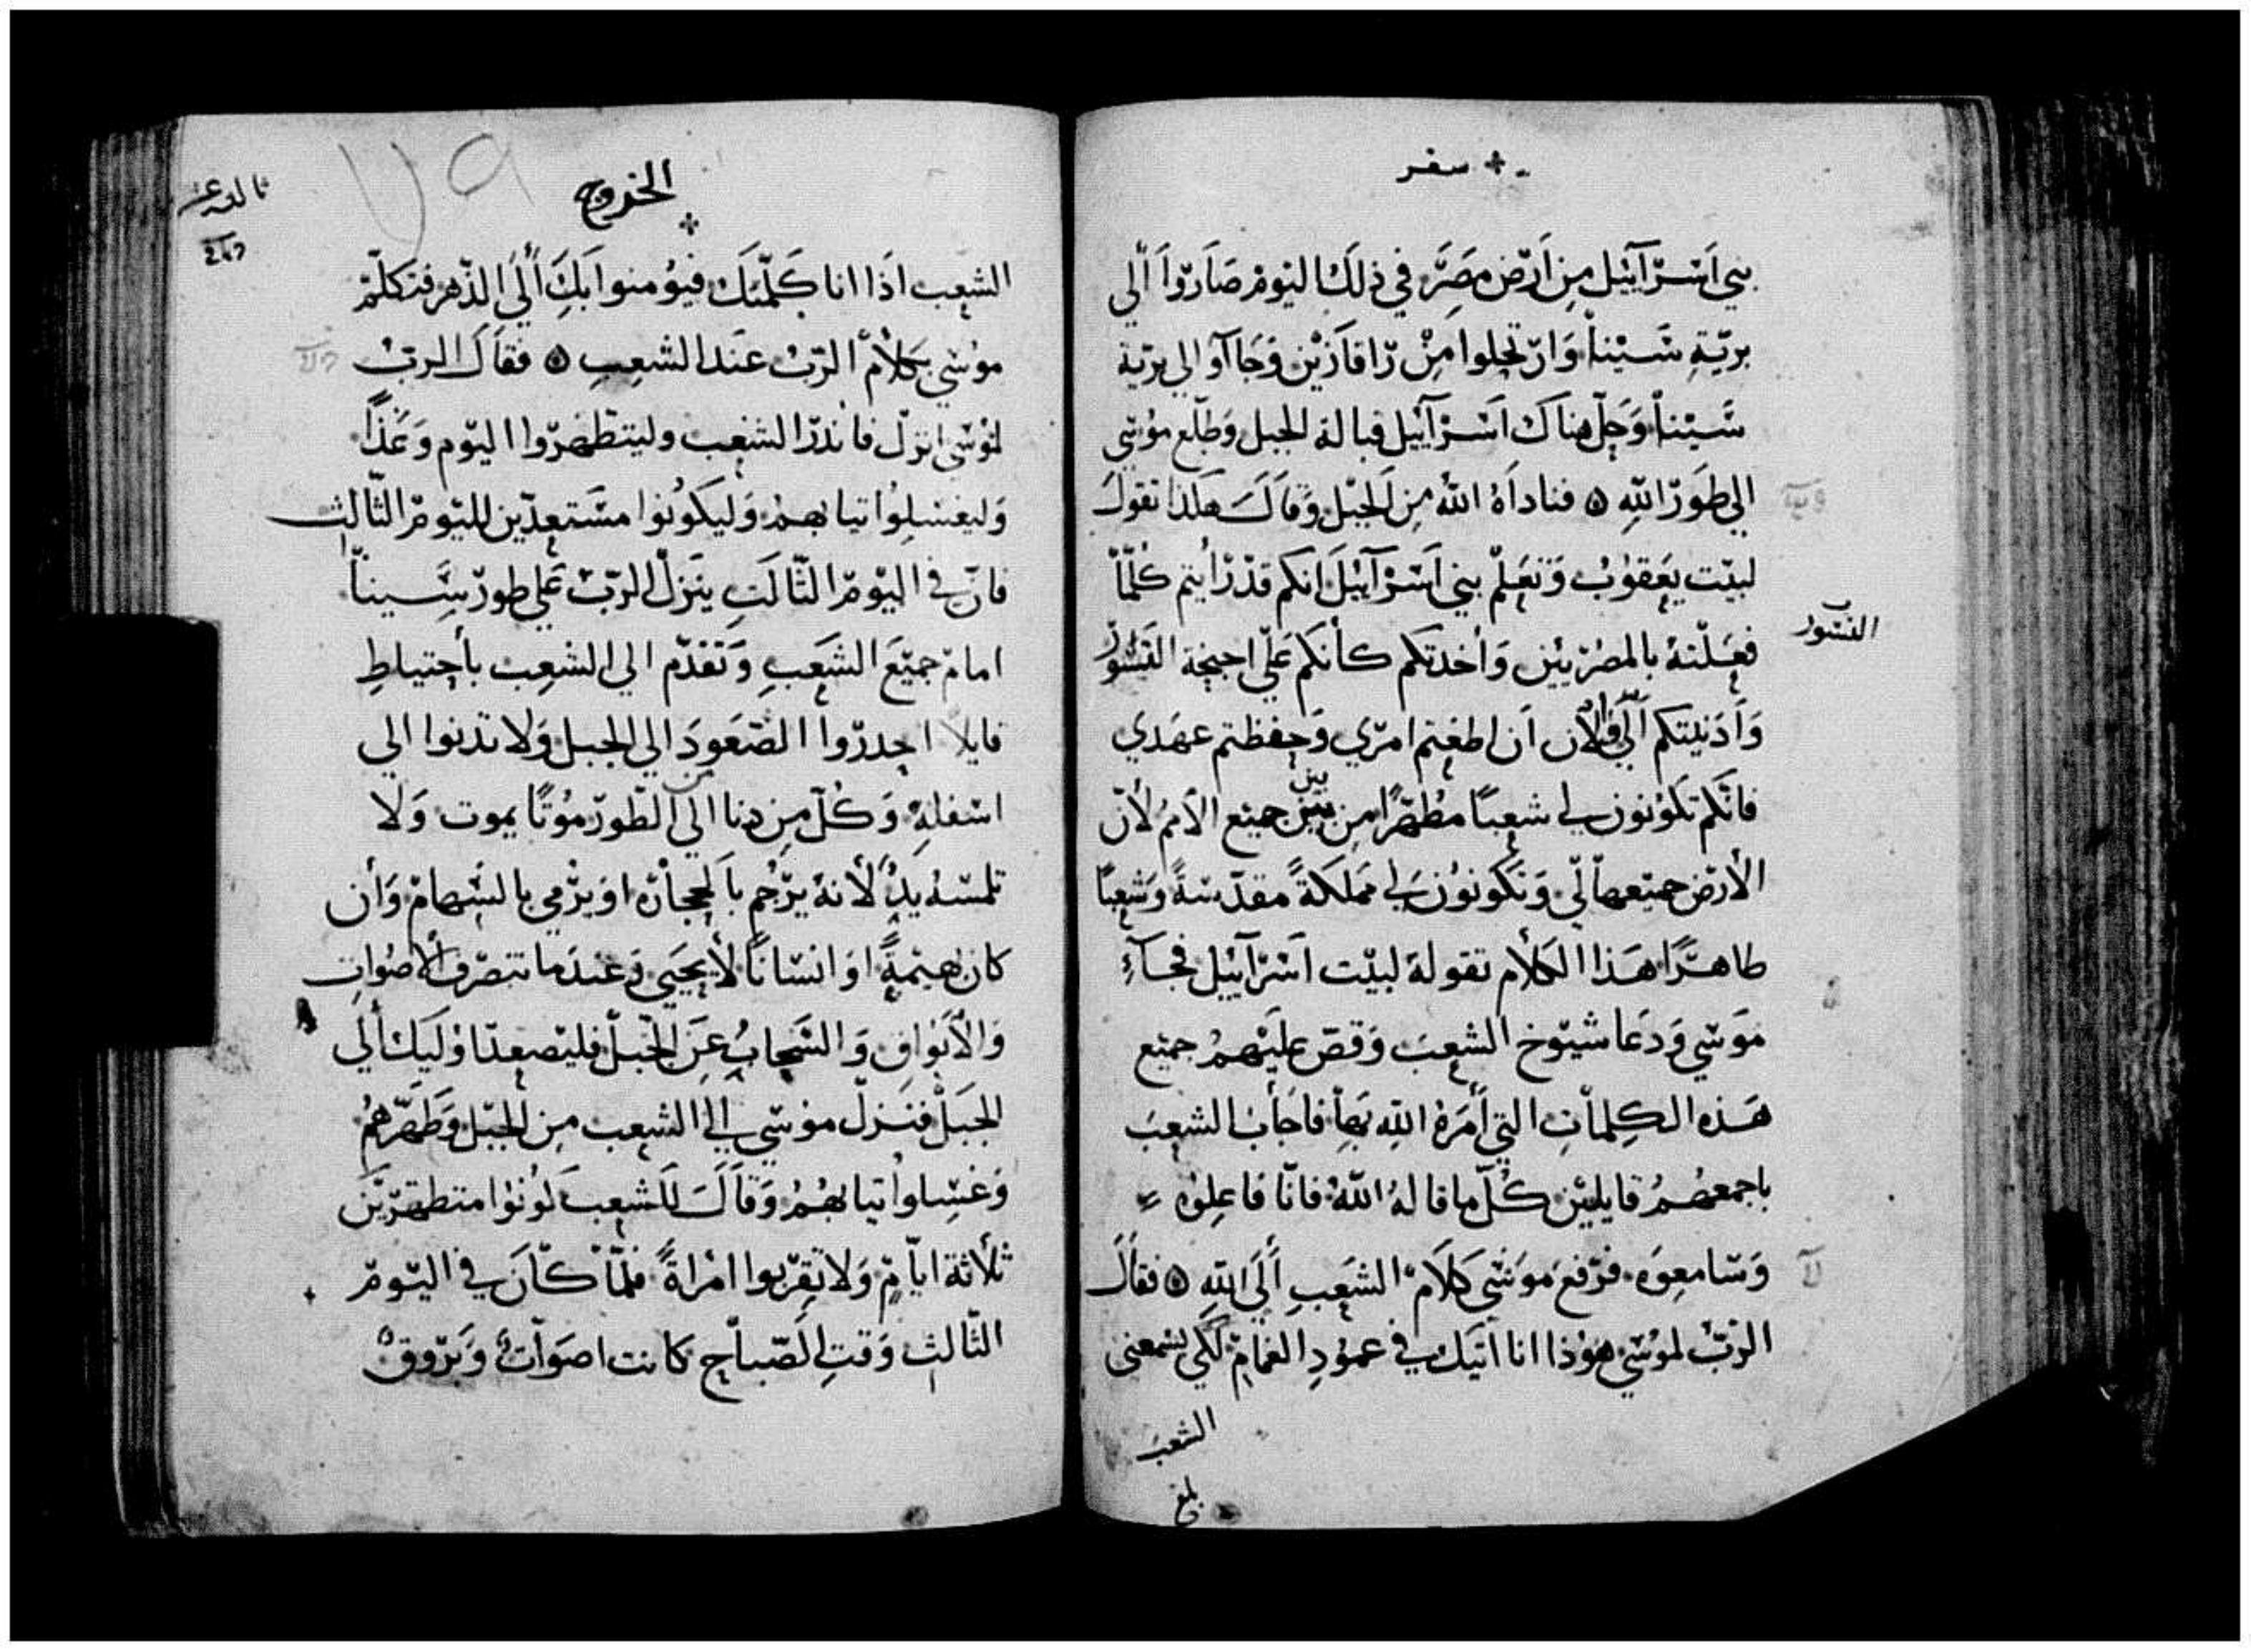 سفر
بني اسرآئيل من ارض مصر في ذلك اليوم صاروا الي
برية سينا وارتحلوا من رافازين وجاآو الي برية
سينا وحل هناك اسرآئيل قبالة الجبل وطلع موسي
الي طور الله فناداه الله من الجبل وقال هكذا تقول
لبيت يعقوب وتعلم بني اسرآئيل انكم قد رأيتم كلما
فعلته بالمصريين وأخدتكم كأنكم علي اجنحة النسور
النسور
وأدنيتكم الي فالان ان اطعتم امري وحفظتم عهدي
فانكم تكونون لي شعبا مطهرا من بين جميع الامم لأن
الأرض جميعها لي وتكونون لي مملكة مقدسة وشعبا
طاهرا هذا الكلام تقوله لبيت اسرآييل فجآء
موسي ودعا شيوخ الشعب وقص عليهم جميع
هذه الكلمات التي أمره الله بها فاجأب الشعب
باجمعهم قايلين كل ما قاله الله فانا فاعلوه
وسامعوه فرفع موسي كلام الشعب ألي الله فقال
الرب لموسي هوذا انا اتيك في عمود الغمام لكي يسمعني
الشعب
بلغ
الخروج
٧٩
الشعب اذا انا كلمتك فيؤمنوا بك ألي الدهر فتكلم
موسي بكلام الرب عند الشعب فقال الرب
لموسي انزل فاندر الشعب وليتطهروا اليوم وغدا
وليغسلوا تيابهم وليكونوا مستعدين لليوم الثالث
فان في اليوم الثالت ينزل الرب علي طور سينا
امام جميع الشعب وتقدم الي الشعب بأحتياط
قايلا احدروا الصعود الي الجبل ولا تدنوا الي
اسفله وكل من دنا الي الطور موتا يموت ولا
تلمسه يد لأنه يرجم بالحجارة او يرمي بالسهام وأن
كان بهيمة او انسانا لا يحيي وعندما تنصرف الاصوات
والابواق والسحاب عن الجبل فليصعد اوليك ألي
الجبل فنزل موسي الي الشعب من الجبل وطهرهم
وغسلوا تيابهم وقال للشعب كونوا متطهرين
ثلاثة ايام ولا تقربوا امراة فلما كان في اليوم
الثالث وقت الصباح كانت اصوات وبروق